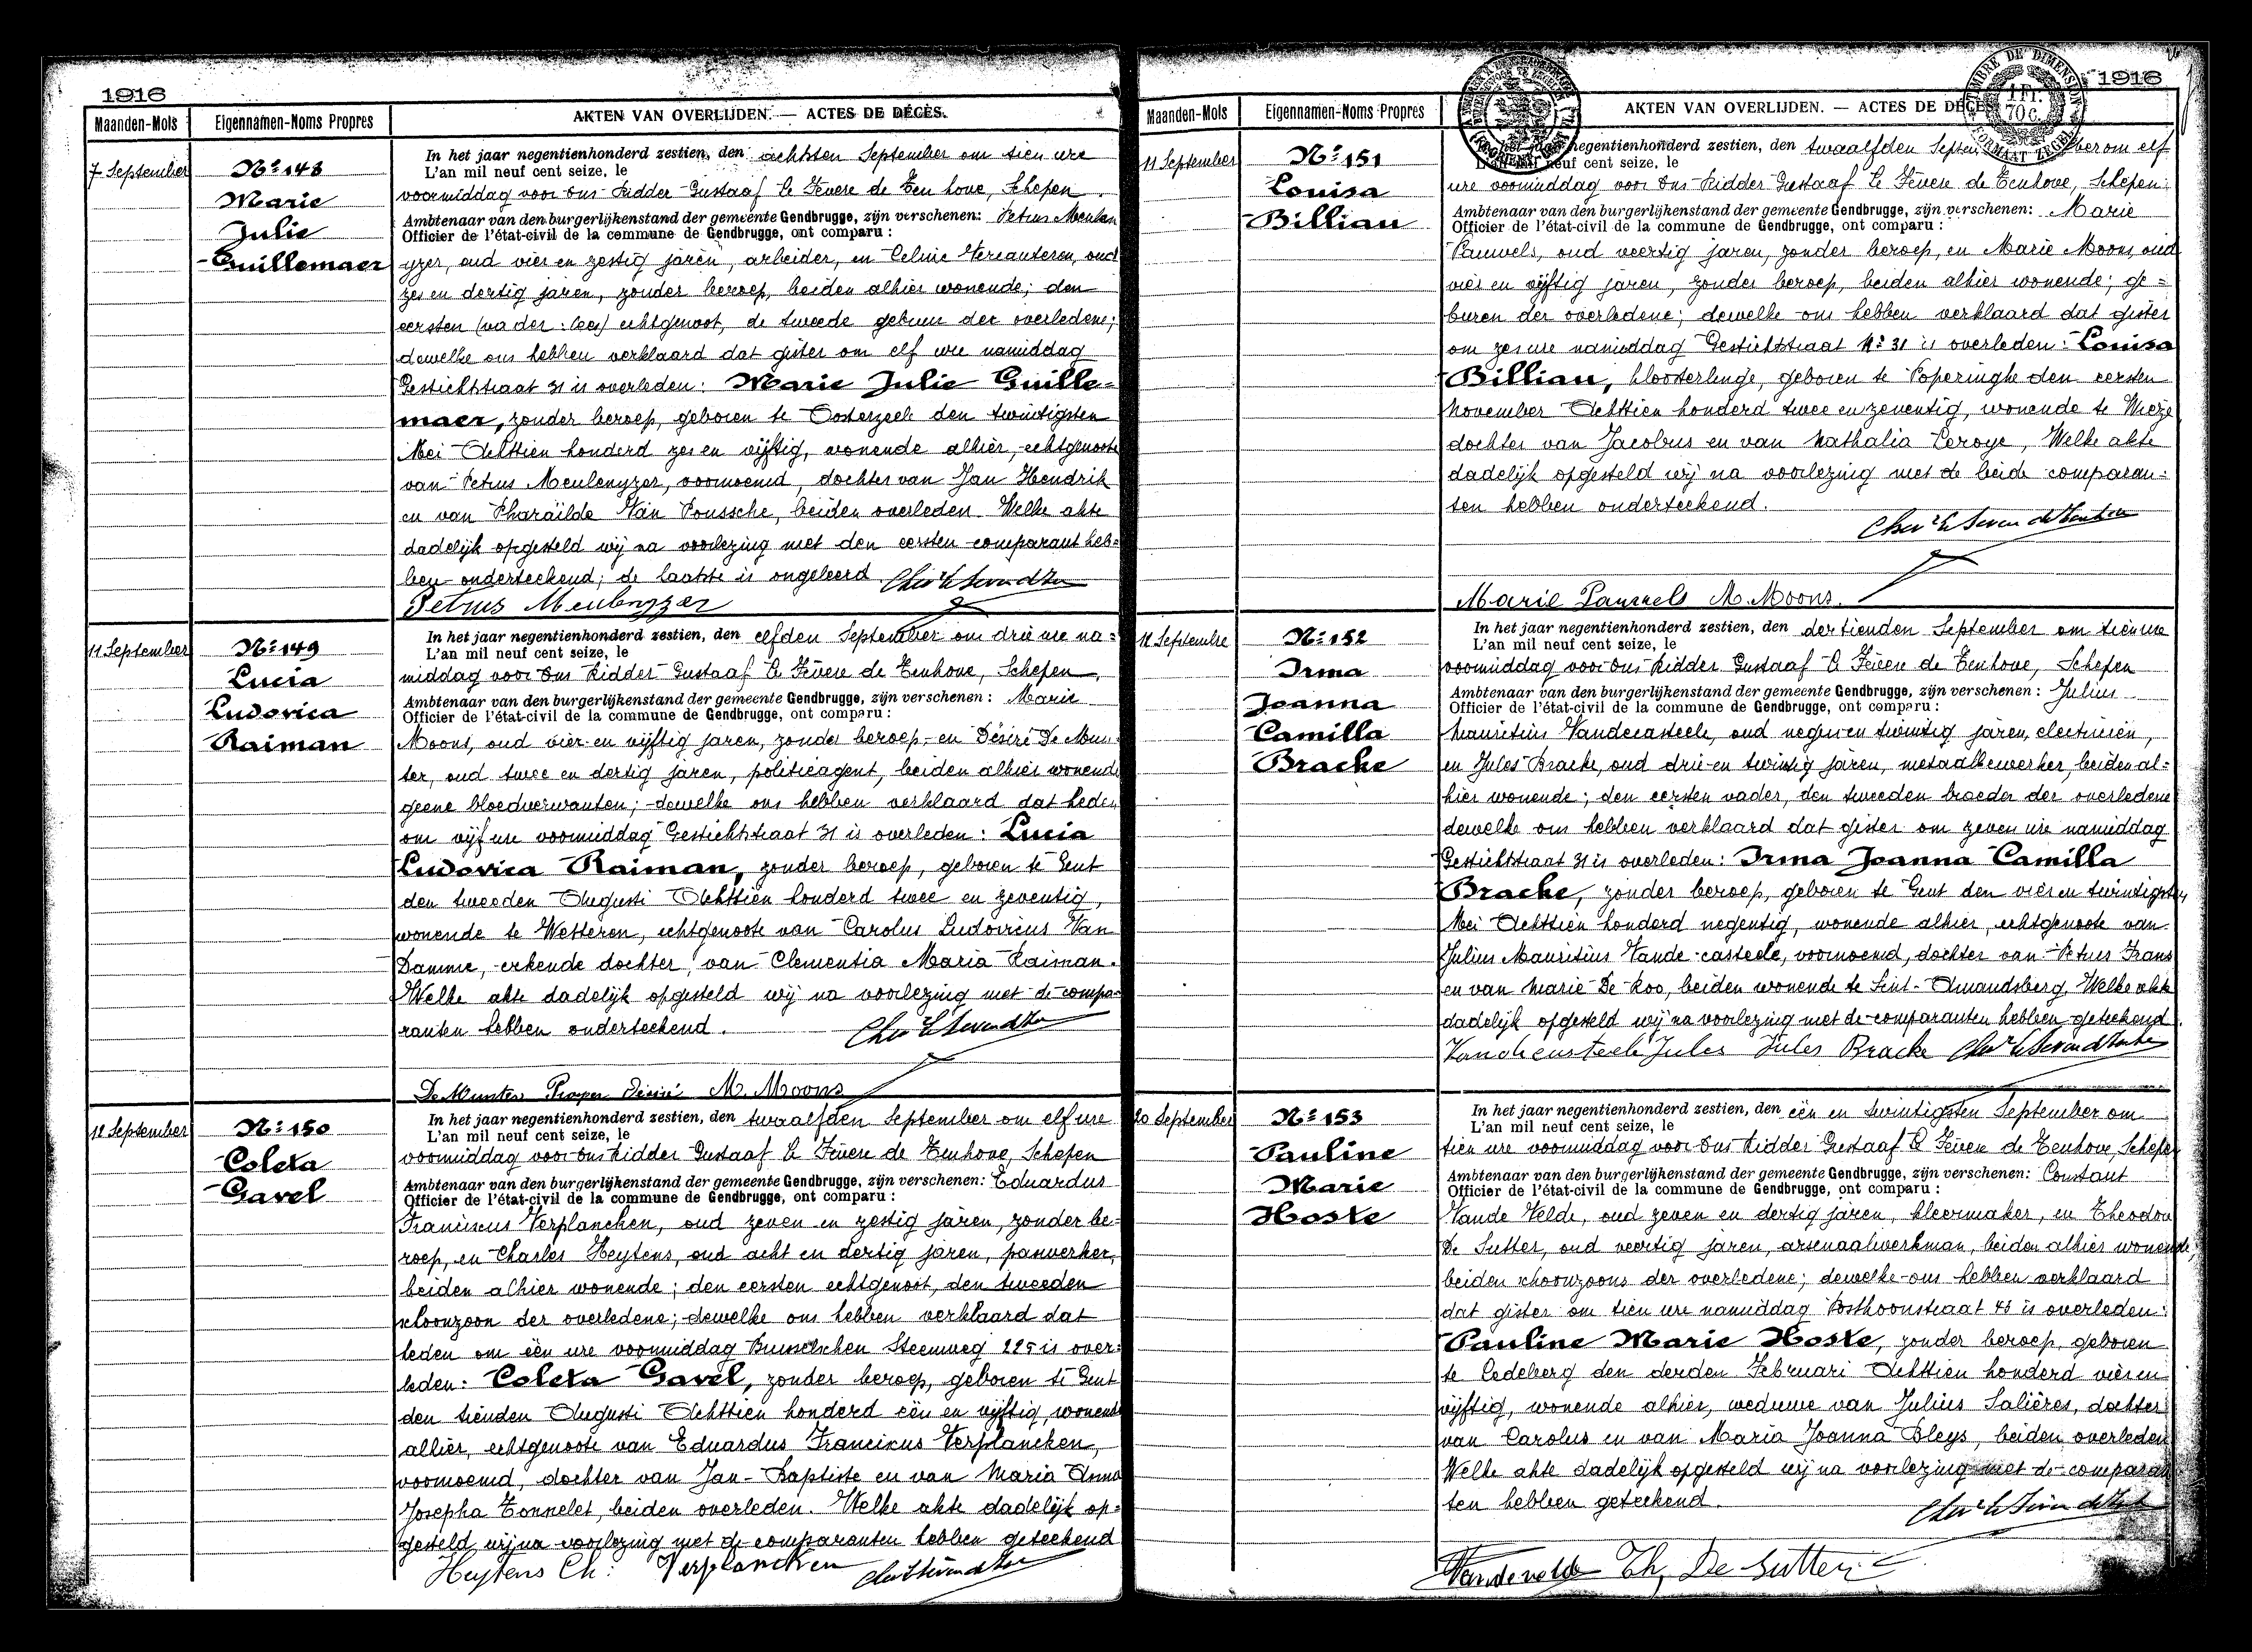 1916
Maanden-Mois Eigennamen-Noms Propres AKTEN VAN OVERLIJDEN. — ACTES DE DÉCÈS.
7 September
Nº 148
Marie
Julie
Guillemaer
In het jaar negentienhonderd zestien, den achtsten September om tien ure
L'an mil neuf cent seize, le
voormiddag voor Ons Ridder Gustaaf le Fèvere de Ten hove, Schepen
Ambtenaar van den burgerlijkenstand der gemeente Gendbrugge, zijn verschenen: Petrus Meulen
Officier de l'état-civil de la commune de Gendbrugge, ont comparu :
yzer, oud vier en zestig jaren, arbeider, en Celine Vercauteren, oud
zes en dertig jaren, zonder beroep, beiden alhier wonende; den
eersten (vader: lees) echtgenoot, de tweede gebuur der overledene;
dewelke ons hebben verklaard dat gister om elf ure namiddag
Gestichtstraat 31 is overleden: Marie Julie Guille-
maer, zonder beroep, geboren te Oosterzeele den twintigsten
Mei Achttien honderd zes en vijftig, wonende alhier, echtgenoote
van Petrus Meulenyzer, voornoemd, dochter van Jan Hendrik
en van Pharaïlde Van Poussche, beiden overleden. Welke akte
dadelijk opgesteld wij na voorlezing met den eersten comparant heb=
ben onderteekend; de laatste is ongeleerd.
Petrus Meulenyzer
11 September
Nº 149
Lucia
Ludovica
Raiman
In het jaar negentienhonderd zestien, den elfden September om drie ure na=
L'an mil neuf cent seize, le
middag voor Ons Ridder Gustaaf le Fèvere de Tenhove, Schepen,
Ambtenaar van den burgerlijkenstand der gemeente Gendbrugge, zijn verschenen: Marie
Officier de l'état-civil de la commune de Gendbrugge, ont comparu :
Moons, oud vier en vijftig jaren, zonder beroep, en Désiré De Mun
ter, oud twee en dertig jaren, politieagent, beiden alhier wonende
geene bloedverwanten; dewelke ons hebben verklaard dat heden
om vijf ure voormiddag Gestichtstraat 31 is overleden: Lucia
Ludovica Raiman, zonder beroep, geboren te Gent
den tweeden Augusti Achttien honderd twee en zeventig,
wonende te Wetteren, echtgenoote van Carolus Ludovicus Van
Damme, erkende dochter van Clementia Maria Raiman.
Welke akte dadelijk opgesteld wij na voorlezing met de compa=
ranten hebben onderteekend.
De Munter Désiré M. Moons
12 September
Nº 150
Coleta
Gavel
In het jaar negentienhonderd zestien, den twaalfden September om elf ure
L'an mil neuf cent seize, le
voormiddag voor Ons Ridder Gustaaf le Fèvere de Tenhove, Schepen
Ambtenaar van den burgerlijkenstand der gemeente Gendbrugge, zijn verschenen: Eduardus
Officier de l'état-civil de la commune de Gendbrugge, ont comparu :
Franciscus Verplancken, oud zeven en zestig jaren, zonder be=
roep, en Charles Heytens, oud acht en dertig jaren,
beiden alhier wonende; den eersten echtgenoot, den tweeden
schoonzoon der overledene; dewelke ons hebben verklaard dat
heden om één ure voormiddag Brusselschen Steenweg 225 is over=
leden: Coleta Gavel, zonder beroep, geboren te Gent
den tienden Augusti Achttien honderd één en vijftig, wonende
alhier, echtgenoote van Eduardus Francicus Verplancken,
voornoemd, dochter van Jan-Baptiste en van Maria Anna
Josepha Tonnelet, beiden overleden. Welke akte dadelijk op=
gesteld wij na voorlezing met de comparanten hebben geteekend
Heytens Ch: Verplancken
1916
Maanden-Mois Eigennamen-Noms Propres AKTEN VAN OVERLIJDEN. — ACTES DE DÉCÈS.
11 September
Nº 151
Louisa
Billiau
In het jaar negentienhonderd zestien, den twaalfden September om elf
L'an mil neuf cent seize, le
ure voormiddag voor Ons Ridder Gustaaf le Fèvere de Tenhove, Schepen
Ambtenaar van den burgerlijkenstand der gemeente Gendbrugge, zijn verschenen: Marie
Officier de l'état-civil de la commune de Gendbrugge, ont comparu :
Pauwels, oud veertig jaren, zonder beroep, en Marie Moons, oud
vier en vijftig jaren, zonder beroep, beiden alhier wonende; ge=
buren der overledene; dewelke ons hebben verklaard dat gister
om zes ure namiddag Gestichtstraat Nº 31 is overleden: Louisa
Billiau, kloosterlinge, geboren te Poperinghe den eersten
November Achttien honderd twee en zeventig, wonende te Wieze
dochter van Jacobus en van Nathalia Leroye, Welke akte
dadelijk opgesteld wij na voorlezing met de beide comparan=
ten hebben onderteekend.
Marie Pauwels M. Moons.
12 September
Nº 152
Irma
Joanna
Camilla
Bracke
In het jaar negentienhonderd zestien, den dertienden September om tien ure
L'an mil neuf cent seize, le
voormiddag voor Ons Ridder Gustaaf le Fèvere de Tenhove, Schepen
Ambtenaar van den burgerlijkenstand der gemeente Gendbrugge, zijn verschenen: Julius
Officier de l'état-civil de la commune de Gendbrugge, ont comparu :
Mauritius Vandecasteele, oud negen en twintig jaren, electricien,
en Jules Bracke, oud drie en twintig jaren, metaalbewerker, beiden al=
hier wonende; den eersten vader, den tweeden broeder der overledene
dewelke ons hebben verklaard dat gister om zeven ure namiddag
Gestichtstraat 31 is overleden: Irma Joanna Camilla
Bracke, zonder beroep, geboren te Gent den vier en twintigsten
Mei Achttien honderd negentig, wonende alhier, echtgenoote van
Julius Mauritius Vande casteele, voornoemd, dochter van Petrus Frans
en van Marie De Roo, beiden wonende te Sint-Amandsberg. Welke akte
dadelijk opgesteld wij na voorlezing met de comparanten hebben geteekend.
Vandecasteele Jules Jules Bracke
20 September
Nº 153
Pauline
Marie
Hoste
In het jaar negentienhonderd zestien, den één en twintigsten September om
L'an mil neuf cent seize, le
tien ure voormiddag voor Ons Ridder Gustaaf le Fèvere de Tenhove, Schepen
Ambtenaar van den burgerlijkenstand der gemeente Gendbrugge, zijn verschenen: Constant
Officier de l'état-civil de la commune de Gendbrugge, ont comparu :
Vande Velde, oud zeven en dertig jaren, kleermaker, en Theodoor
De Sutter, oud veertig jaren, arsenaalwerkman, beiden alhier wonende,
beiden schoonzoons der overledene; dewelke ons hebben verklaard
dat gister om tien ure namiddag Posthoornstraat is overleden:
Pauline Marie Hoste, zonder beroep, geboren
te Ledeberg den derden Februari Achttien honderd vier en
vijftig, wonende alhier, weduwe van Julius Salières, dochter
van Carolus en van Maria Joanna Bleys, beiden overleden
Welke akte dadelijk opgesteld wij na voorlezing met de comparan
ten hebben geteekend.
Vandevelde Th. De Sutter